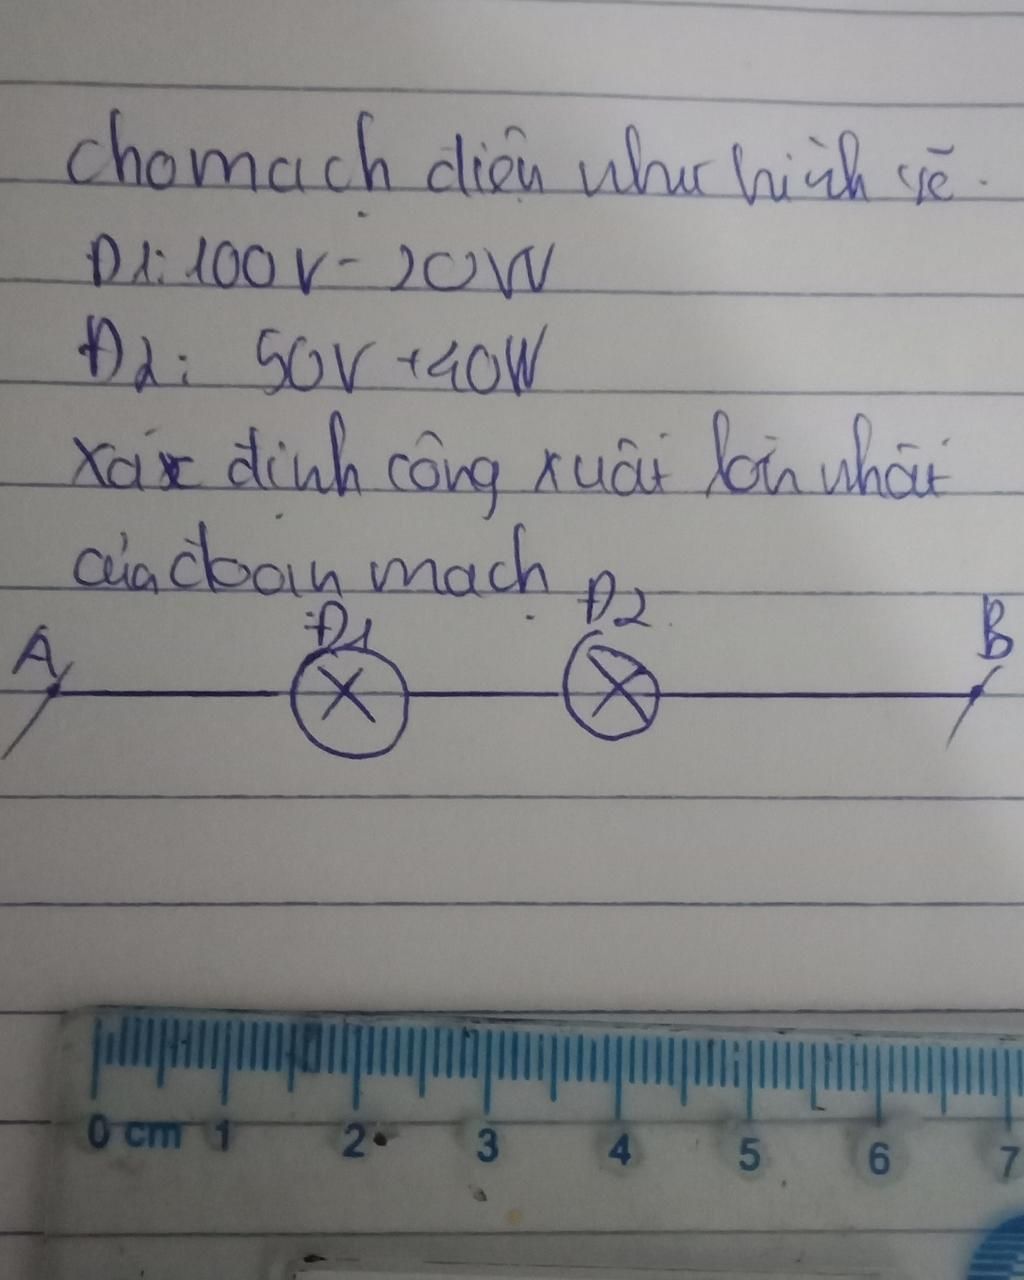 cho mạch điện như hình vẽ.
Đ1: 100V - 20W
Đ2: 50V - 40W
xác định công xuất lớn nhất
của đoạn mạch
Đ1 Đ2
A B
0 cm 1 2 3 4 5 6 7